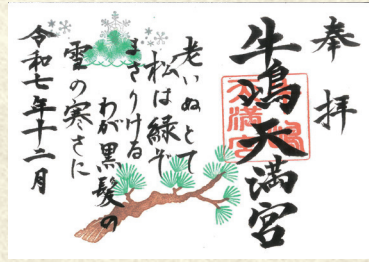 奉拝
牛嶋天満宮
老いぬとて
松は緑ぞ
まさりける
わが黒髪の
雪の寒さに
令和七年十二月